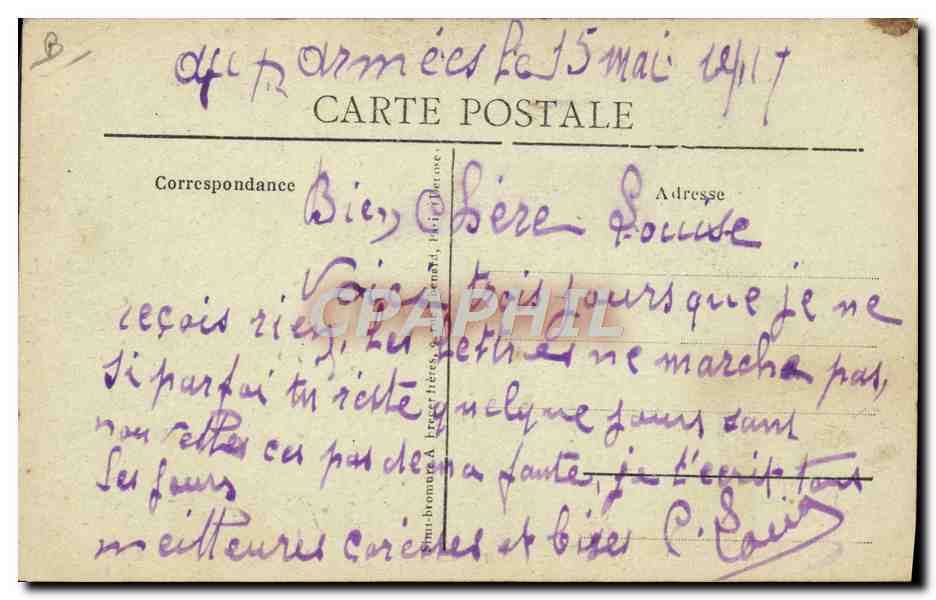 aux armées le 15 mai 1917
CARTE POSTALE
Correspondance
Adresse
Bien Chère Louise
Voici trois jours que je ne
reçois rien, les lettres ne marche pas,
si parfoi tu reste quelque jours sant
nouvelles ces pas de ma faute, je t'ecrit tous
les jours
meilleures caresses et bises C. Louis
Simi-bromure A. Breger frères,
CPAPHIL